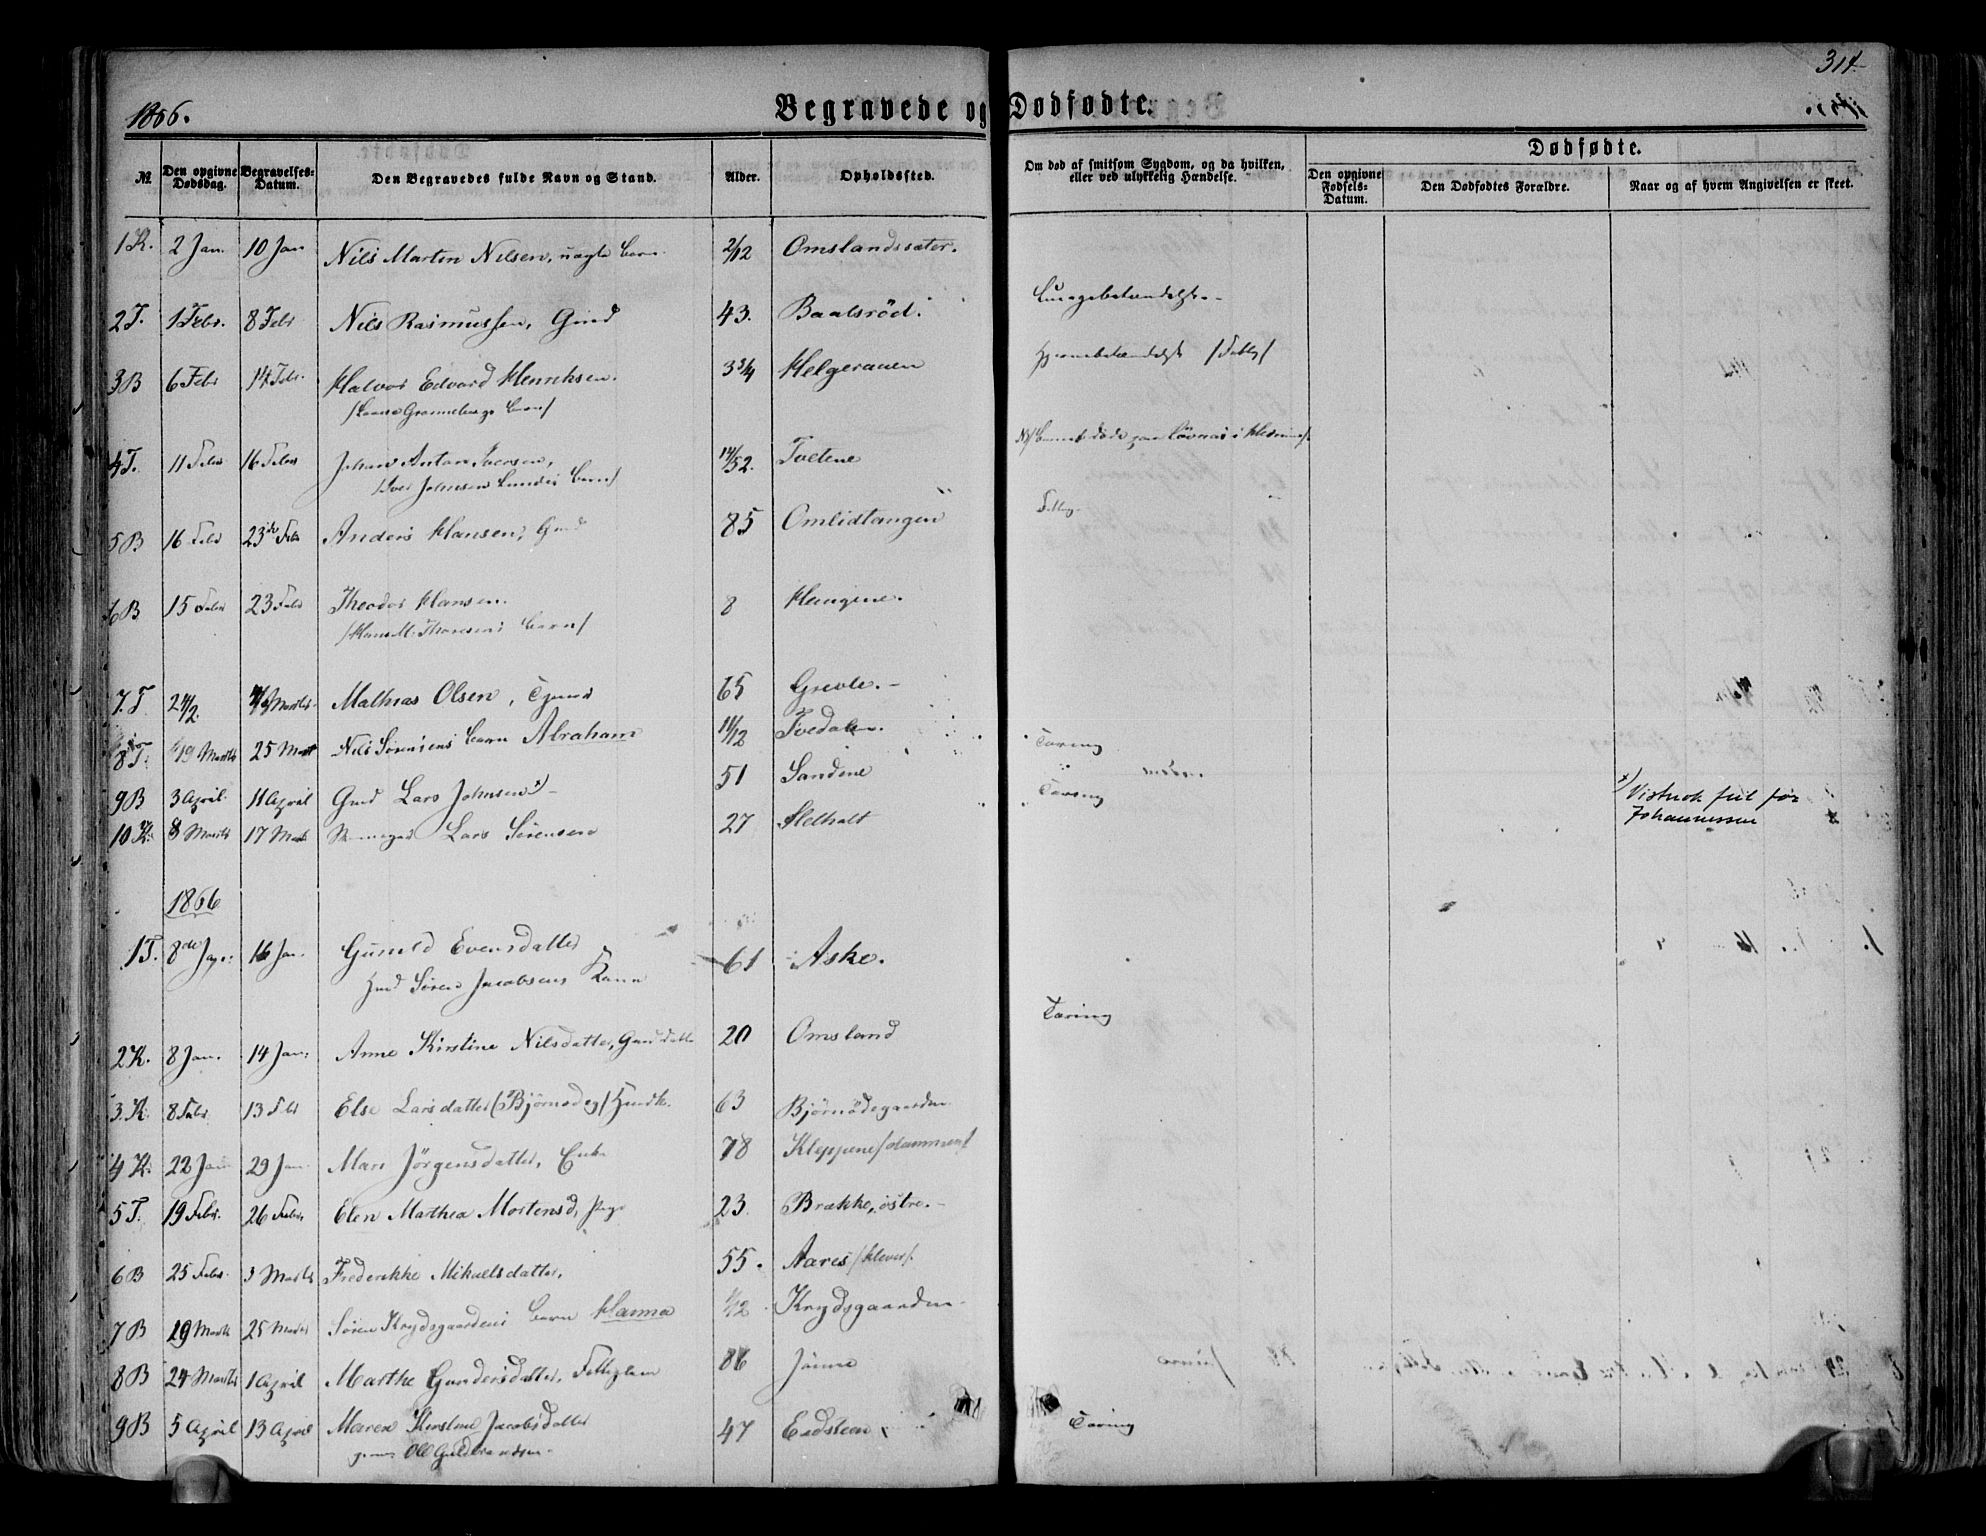 314
1866.
Begravede og Dødfødte.
Dødfødte.
№
Den opgivne Dødsdag.
Begravelses-Datum.
Den Begravedes fulde Navn og Stand.
Alder.
Opholdssted.
Om død af smitsom Sygdom, og da hvilken, eller ved ulykkelig Hændelse.
Den opgivne Fødsels-Datum.
Den Dødfødtes Forældre.
Naar og af hvem Angivelsen er skeet.
1 K. 2 Jan. 10 Jan Nils Martin Nilsen, uægte Barn 2/12 Omslandssæter.
2 T. 1 Febr. 8 Febr Nils Rasmussen, Gmd 43. Baalsrød. Lungebetændelse
3 B 6 Febr 14 Febr. Halvor Edvard Henriksen. 3 3/4 Helgeraaen Hjernebetændelse
Barn/
4 T. 11 Febr 16 Febr Johan Anton Iversen, 14/52. Tvetene
/Iver Johnsen Barn/
5 B 16 Febr 23de Febr Anders Hansen, Gmd 85 Omlidtangen
6 B 15 Febr 23 Febr Theodor Hansen. 8 Haugene.
/Hans M. Thoresens Barn/
7. T 24/2. Marts Mathias Olsen, 65 Grevle.
8 T. 19 Marts 25 Mart Nils Sørensens Barn Abraham 11/12 Tvedalen. Tæring
9 B 3 April. 11 April Gmd Lars Johnsen x) 51 Sandene Tæring
x) Vistnok feil for
Johannessen
10 K. 8 Marts 17 Marts Lars Sørensen 27
1866
1 T. 8de Jan. 16 Jan. Gunild Evensdatter 61 Aske.
Søren Jacobsens Kone
2 K. 8 Jan. 14 Jan. Anne Kirstine Nilsdatter, 20 Omsland Tæring
3. K. 8 Febr 13 Febr Else Larsdatter (Bjørnødeg/ 63 Bjørnødegaarden
4 K. 22 Jan 29 Jan. Mari Jørgensdatter, Enke 78 Kleppene
5 T. 19 Febr. 26 Febr. Elen Marthea Mortensd, Pige 23. Brække, østre.
6 B 25 Febr. 3 Marts Frederikke Mikaelsdatter, 55. Aarøs /Klever/.
7 B 19 Marts 25 Marts Søren Krydsgaardens Barn Hanna Krydsgaarden
8 B 24 Marts 1 April Marthe Gundersdatter, Fattiglem 86
9 B 5 April 13 April Maren Kirstine Jacobsdatter 47 Eidsteen Tæring
Ole Guldbrandsen